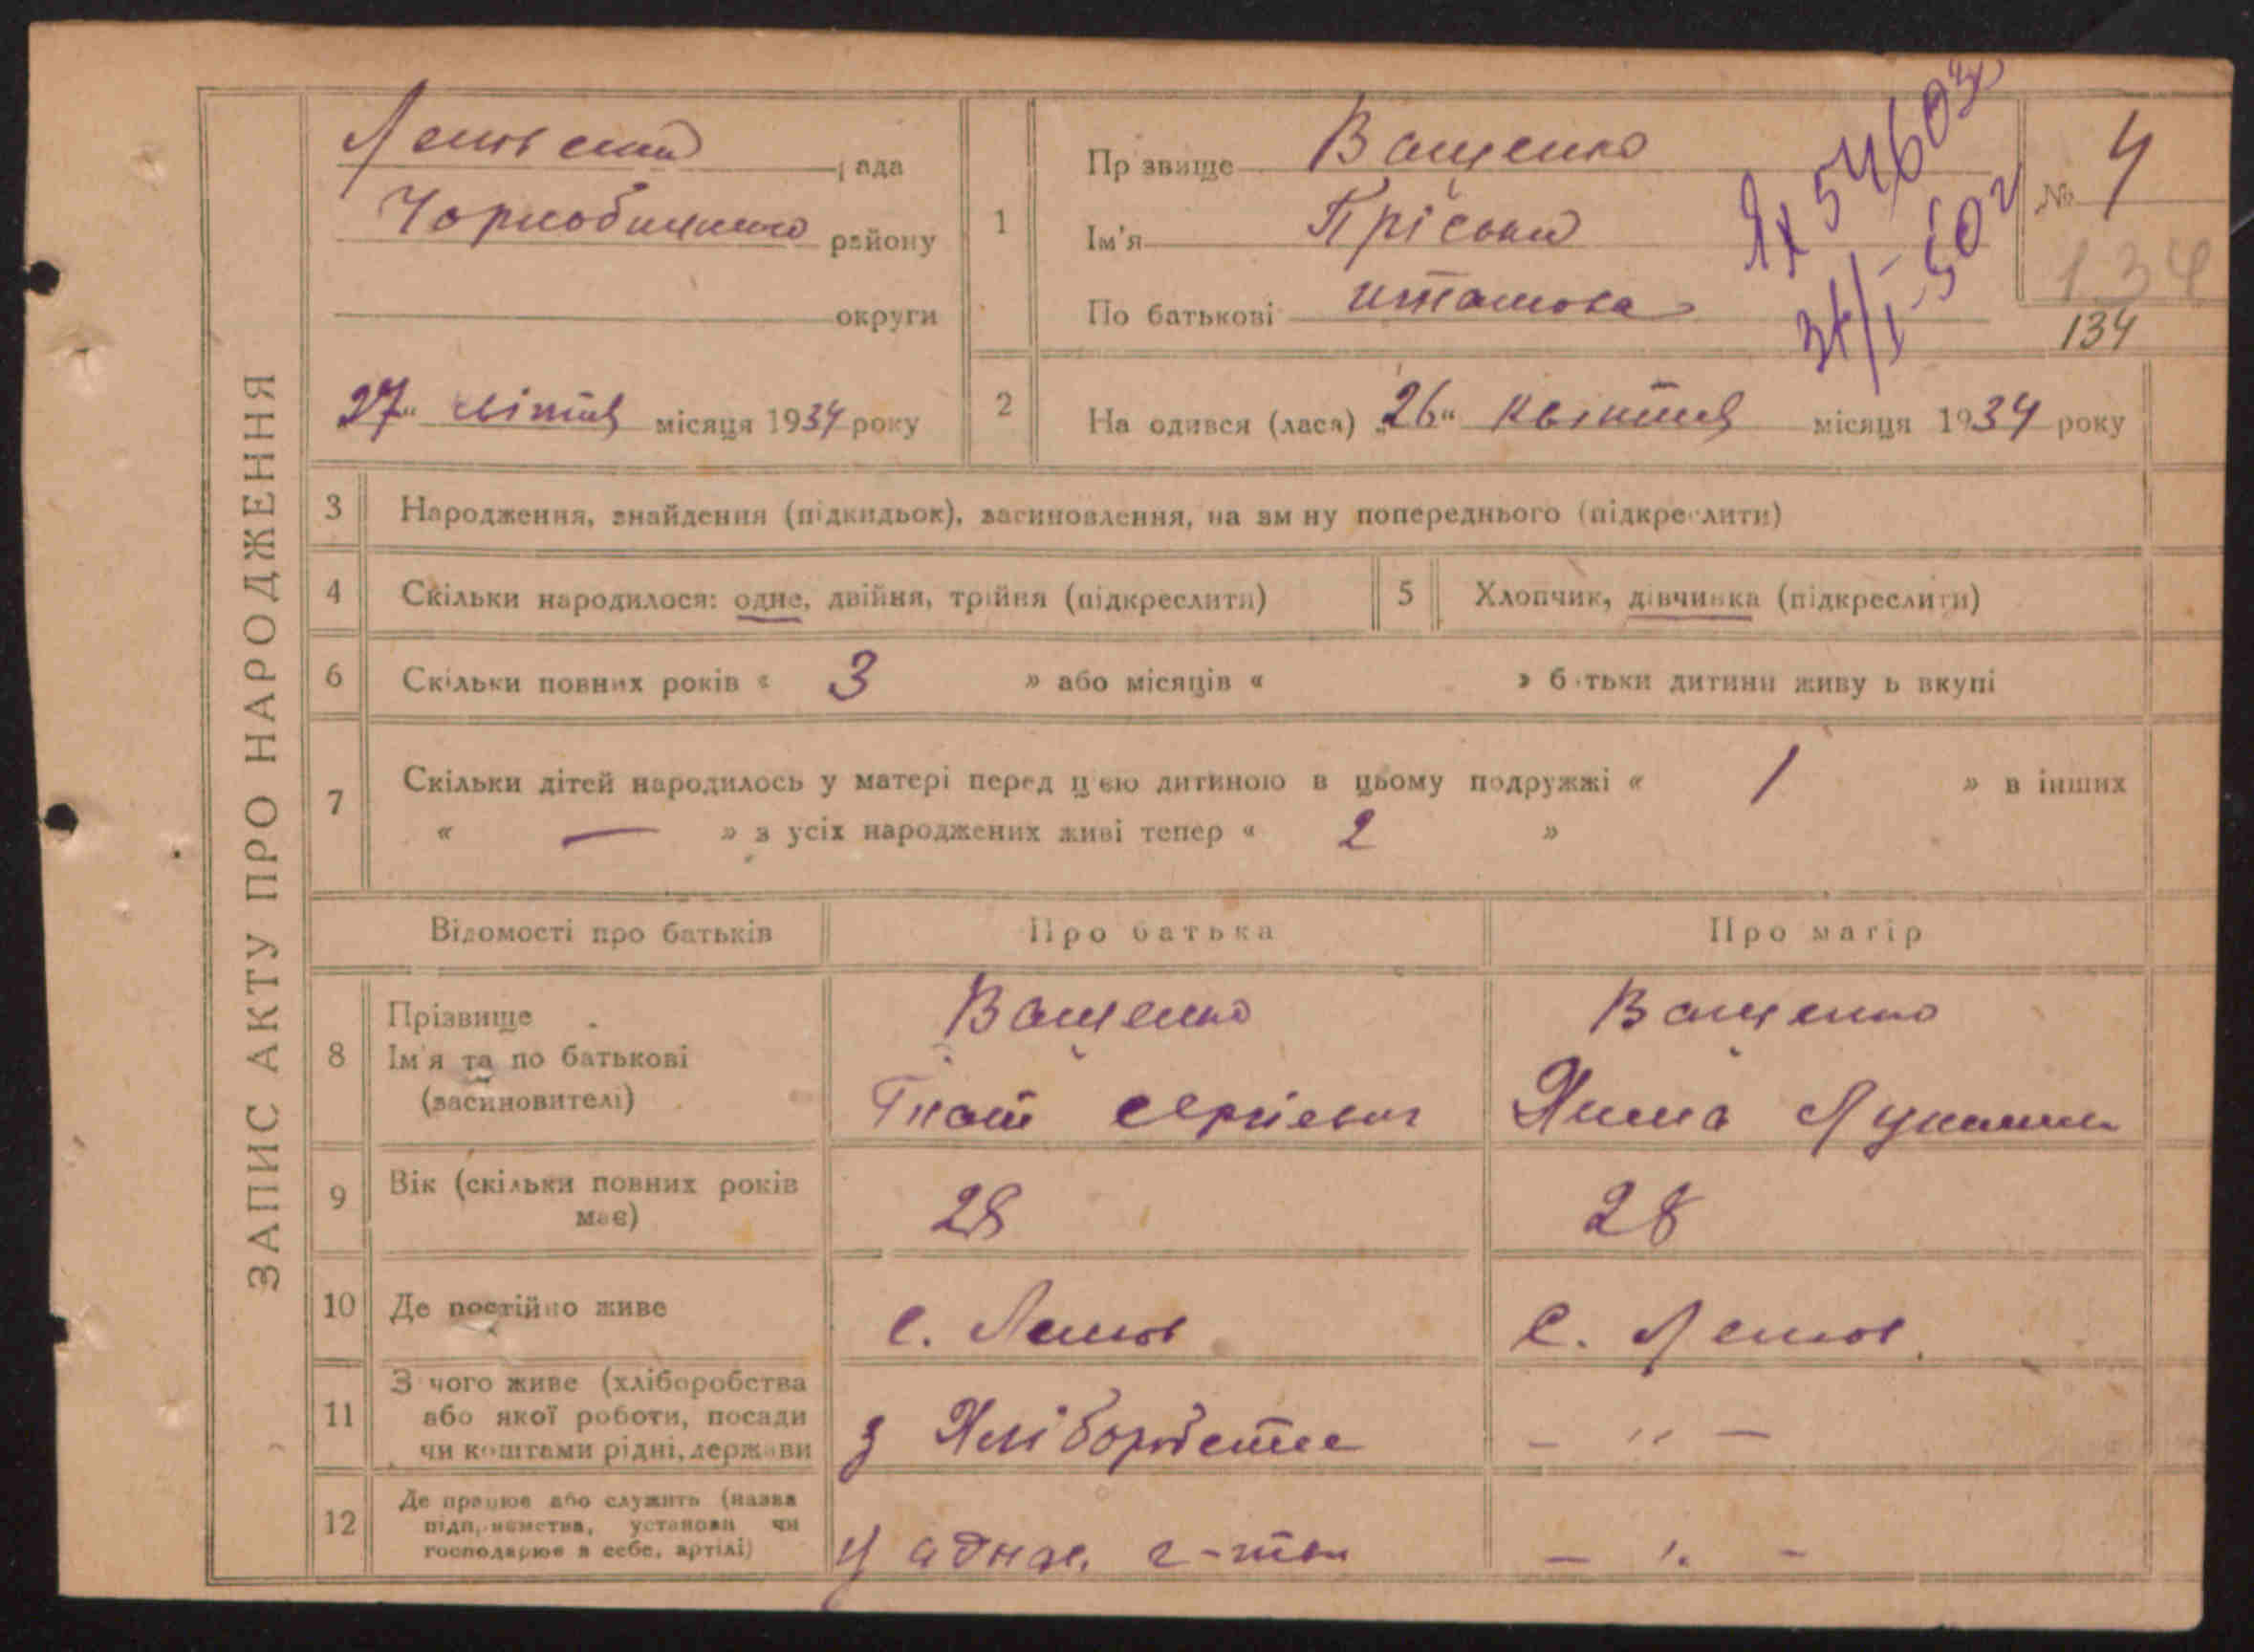 ЗАПИС АКТУ ПРО НАРОДЖЕННЯ
рада
району
округи
27" місяця 1934 року
1
Прізвище Ващенко
Ім'я Пріська
По батькові
№ 4
134
134
2
На одився (лася) „26" квітня місяця 1934 року
3 Народження, знайдення (підкидьок), засиновлення, на зм ну попереднього (підкреслити)
4 Скільки народилося: одне, двійня, трійня (підкреслити)
5 Хлопчик, дівчинка (підкреслити)
6 Скільки повних років « 3 » або місяців « » б тьки дитини живу ь вкупі
7 Скільки дітей народилось у матері перед цією дитиною в цьому подружжі « 1 » в інших
« — » з усіх народжених живі тепер « 2 »
Відомості про батьків Про батька Про матір
8 Прізвище Ващенко Ващенко
Ім'я та по батькові
(засиновителі) Гнат Сергієвич
9 Вік (скільки повних років має) 28 28
10 Де постійно живе с. с.
11 З чого живе (хліборобства
або якої роботи, посади
чи коштами рідні, держави з Хліборобства – " –
12 Де працює або служить (назва
підприємства, установи чи
господарює в себе, артілі) У – " –